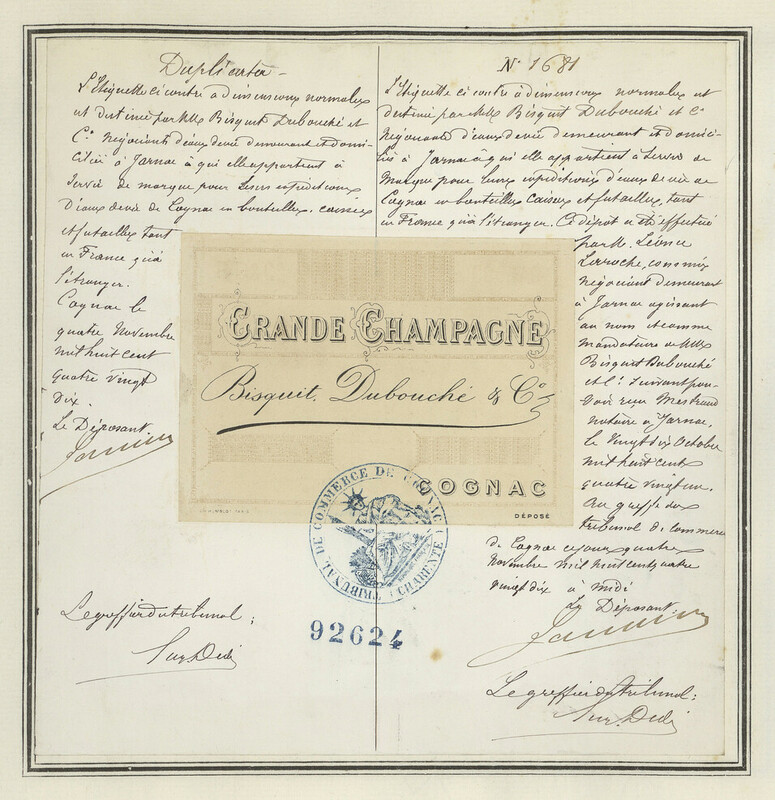 Duplicata
L'étiquette ci contre à dimensions normales
est destinée par MM Bisquit Dubouché et
Cº Négociants d'eaux de vie demeurant et domi-
ciliés à Jarnac à qui elle appartient à
servir de marque pour leurs expéditions
d'eaux de vie de Cognac en bouteilles, caisses
et futailles tant
en France qu'à
l'étranger.
Cognac le
quatre Novembre
mil huit cent
quatre vingt
dix.
Le Déposant
Nº 1681
L'étiquette ci contre à dimensions normales est
destinée par MM Bisquit Dubouché et Cº
Négociants d'eaux de vie demeurant et domici-
liés à Jarnac à qui elle appartient à servir de
marque pour leurs expéditions d'eaux de vie de
Cognac en bouteilles caisses et futailles, tant
en France qu'à l'étranger. Ce dépôt a été effectué
par M. Léonce
Larroche, commis
négociant demeurant
à Jarnac agissant
au nom et comme
mandataire de MM
Bisquit Dubouché
et Cº suivant pou-
voir reçu
notaire à Jarnac,
le vingt dix Octobre
mil huit cent
quatre vingt un.
Au greffe du
tribunal de commerce
de Cognac ce jour quatre
Novembre mil huit cent quatre
vingt dix à midi
Le Déposant
GRANDE CHAMPAGNE
Bisquit, Dubouché & Cº
COGNAC
DÉPOSÉ
TRIBUNAL DE COMMERCE DE COGNAC
CHARENTE
92624
Le greffier du tribunal:
Le greffier du tribunal: